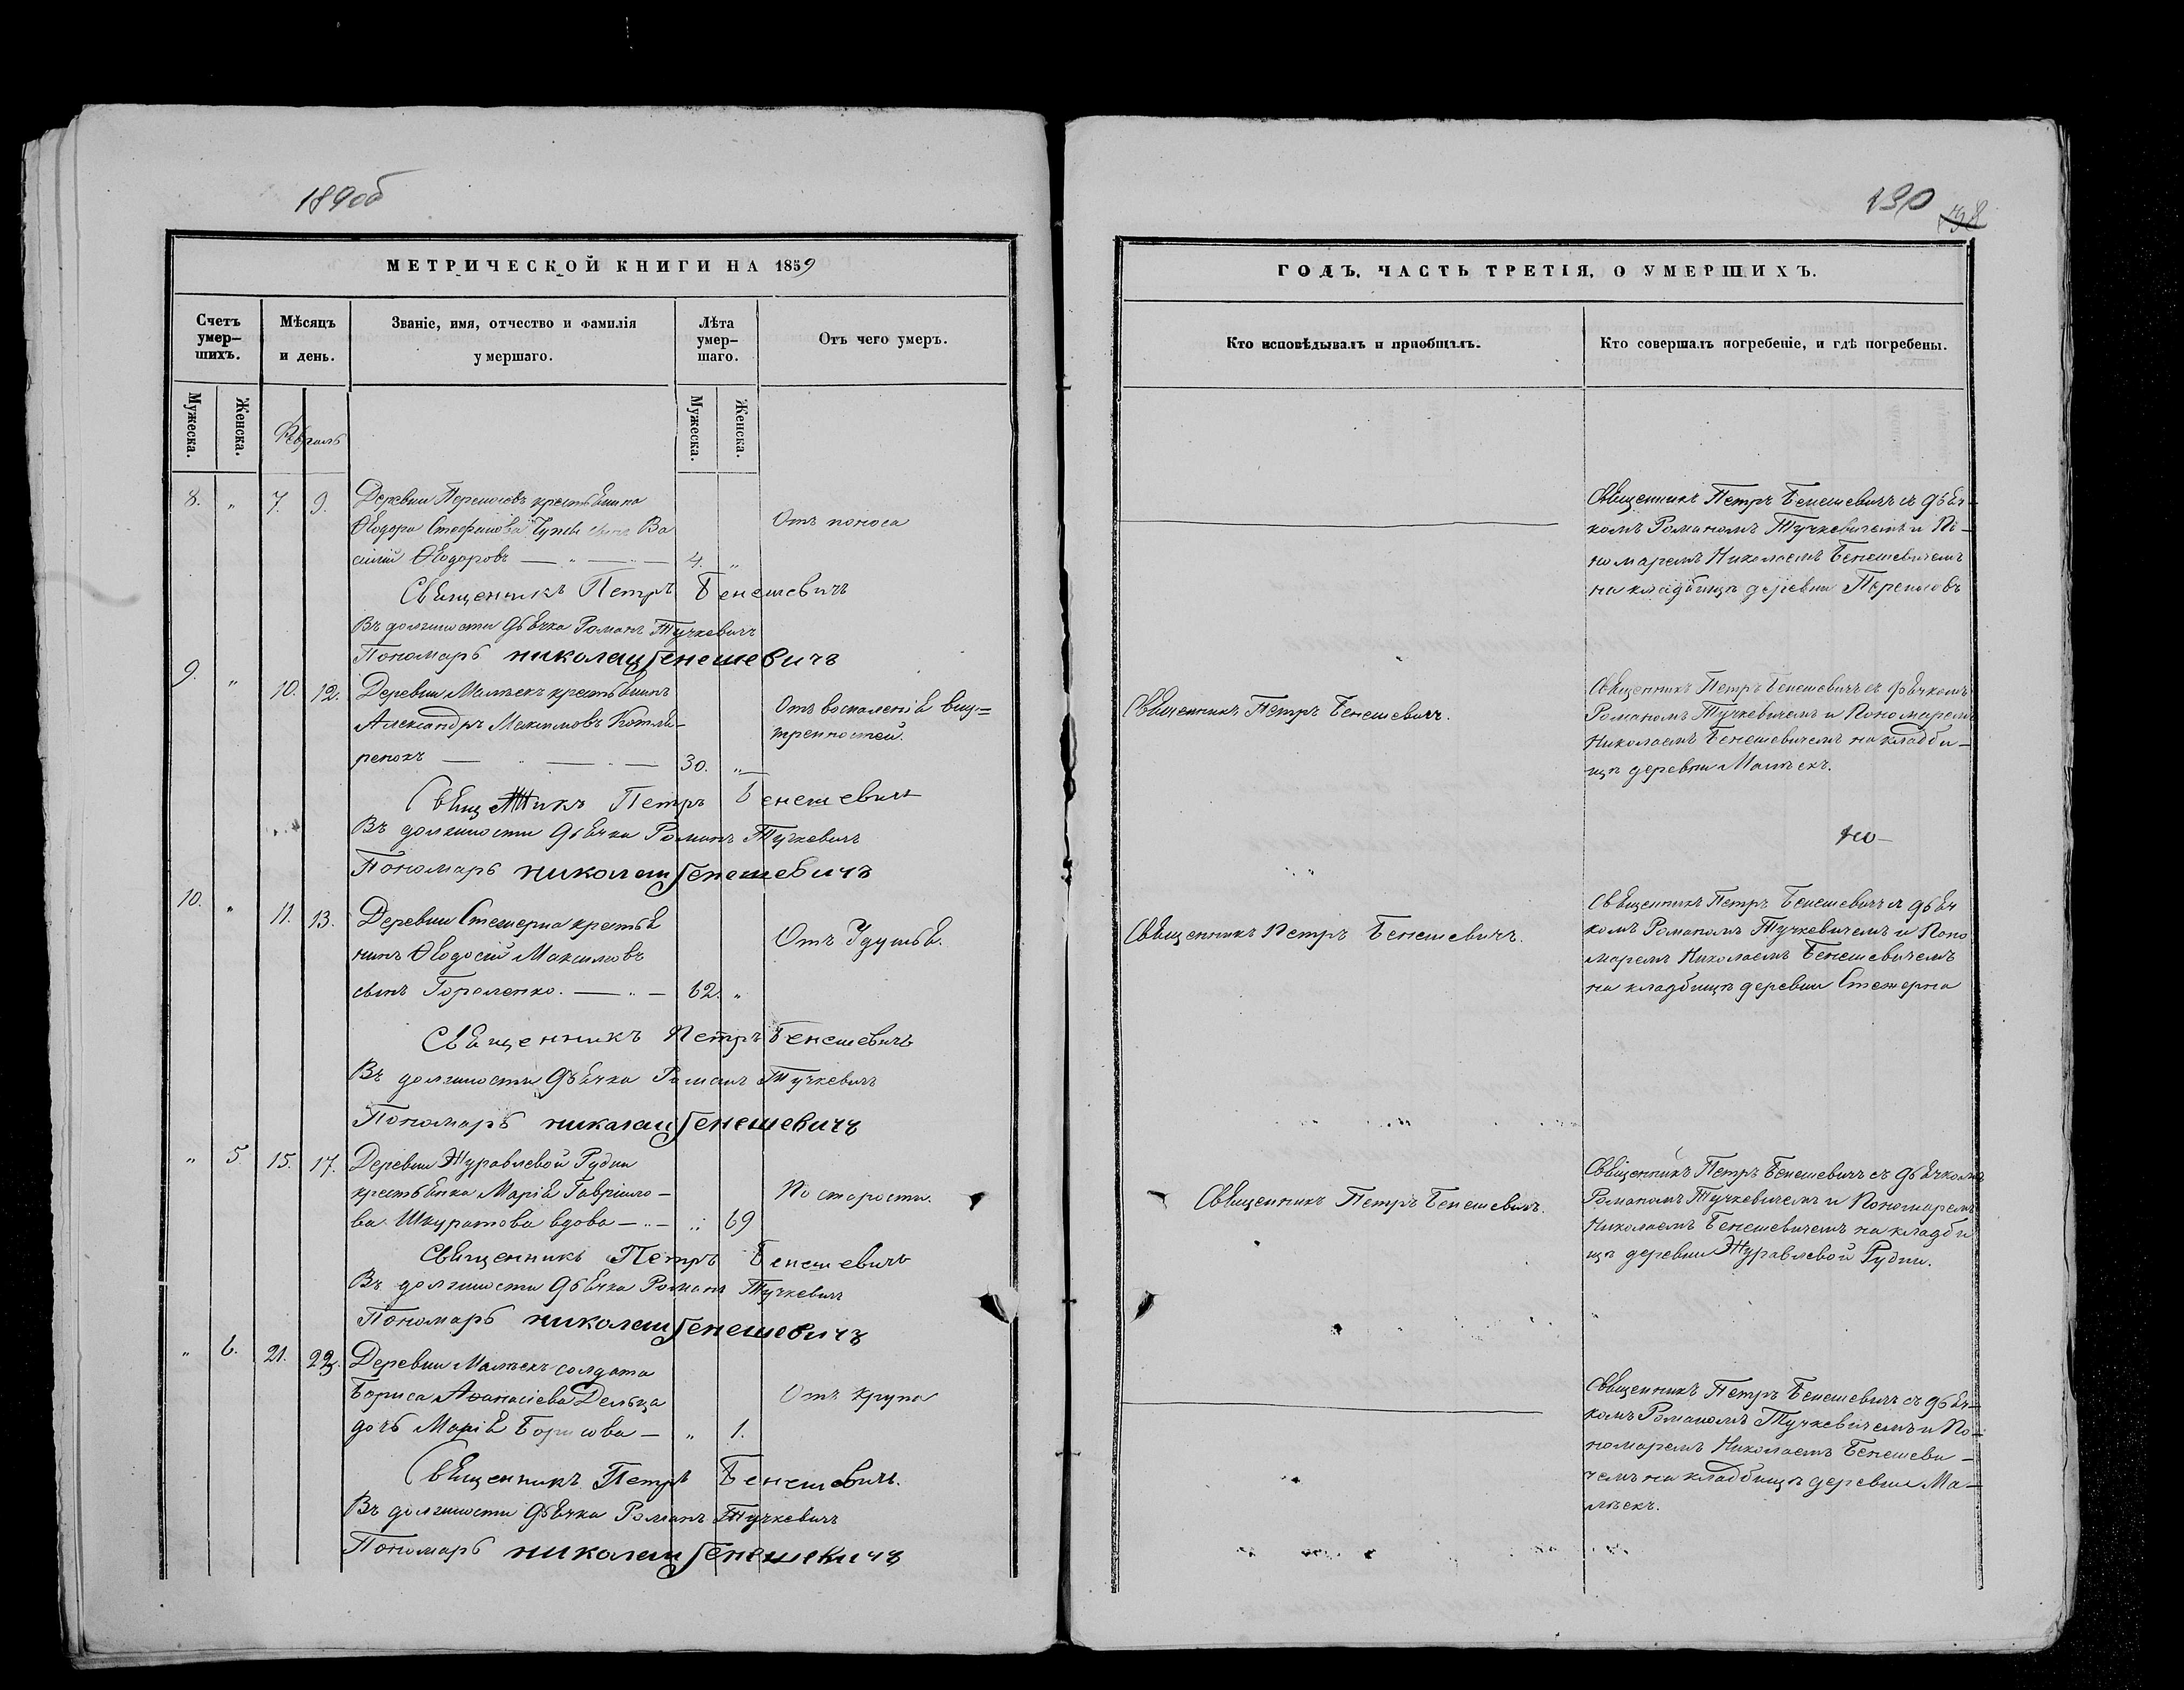 189об
МЕТРИЧЕСКОЙ КНИГИ НА 1859
Счетъ умер-шихъ.
Мѣсяцъ и день.
Званіе, имя, отчество и фамилія умершаго.
Лѣта умер-шаго.
Отъ чего умеръ.
Мужеска.
Женска.
Февраль
Мужеска.
Женска.
8. " 7. 9. Деревни Переловъ крестьянина
Ѳеодора Стефанова сынъ Ва
силій Ѳеодоровъ — " — 4. "
Отъ поноса
Священникъ Петръ Бенешевичъ
Въ должности дьячка Романъ Тучкевичъ
Пономарь николай бенешевичъ
9. " 10. 12. Деревни Малѣекъ крестьянинъ
Александръ Максимовъ Котля-
ренокъ — " — 30. "
Отъ воспаленія вну=
тренностей.
Священникъ Петръ Бенешевичъ
Въ должности дьячка Романъ Тучкевичъ
Пономарь николай бенешевичъ
10. " 11. 13. Деревни Стежерна крестья
нинъ Ѳеодосій Максимовъ
сынъ Гораленко. — " — 62. "
Отъ Удушья.
Священникъ Петръ Бенешевичъ
Въ должности дьячка Романъ Тучкевичъ
Пономарь николай бенешевичъ
" 5 15. 17. Деревни Журавлевой Рудни
крестьянка Марія Гавріило-
ва Шкуратова вдова — " — " 69
По старости.
Священникъ Петръ Бенешевичъ
Въ должности дьячка Романъ Тучкевичъ
Пономарь николай бенешевичъ
" 6. 21. 23. Деревни Малѣекъ солдата
Бориса Аѳанасіева Дельца
дочь Марія Борисова — " 1.
Отъ крупа
Священникъ Петръ Бенешевичъ.
Въ должности дьячка Романъ Тучкевичъ
Пономарь николай бенешевичъ
190
198
ГОДЪ, ЧАСТЬ ТРЕТІЯ, О УМЕРШИХЪ.
Кто исповѣдывалъ и пріобщалъ.
Кто совершалъ погребеніе, и гдѣ погребены.
Священникъ Петръ Бенешевичъ съ дьяч-
комъ Романомъ Тучкевичемъ и По-
номаремъ Николаемъ Бенешевичемъ
на кладбищѣ деревни Переловъ
Священникъ Петръ Бенешевичъ.
Священникъ Петръ Бенешевичъ съ дьячкомъ
Романомъ Тучкевичемъ и Пономаремъ
Николаемъ Бенешевичемъ на кладби-
щѣ деревни Малѣекъ.
Священникъ Петръ Бенешевичъ.
Священникъ Петръ Бенешевичъ съ дьяч
комъ Романомъ Тучкевичемъ и Поно
маремъ Николаемъ Бенешевичемъ
на кладбищѣ деревни Стежерна
Священникъ Петръ Бенешевичъ.
Священникъ Петръ Бенешевичъ съ дьячкомъ
Романомъ Тучкевичемъ и Пономаремъ
Николаемъ Бенешевичемъ на кладби
щѣ деревни Журавлевой Рудни.
Священникъ Петръ Бенешевичъ съ дьяч-
комъ Романомъ Тучкевичемъ и По-
номаремъ Николаемъ Бенешеви-
чемъ на кладбищѣ деревни Ма-
лѣекъ.